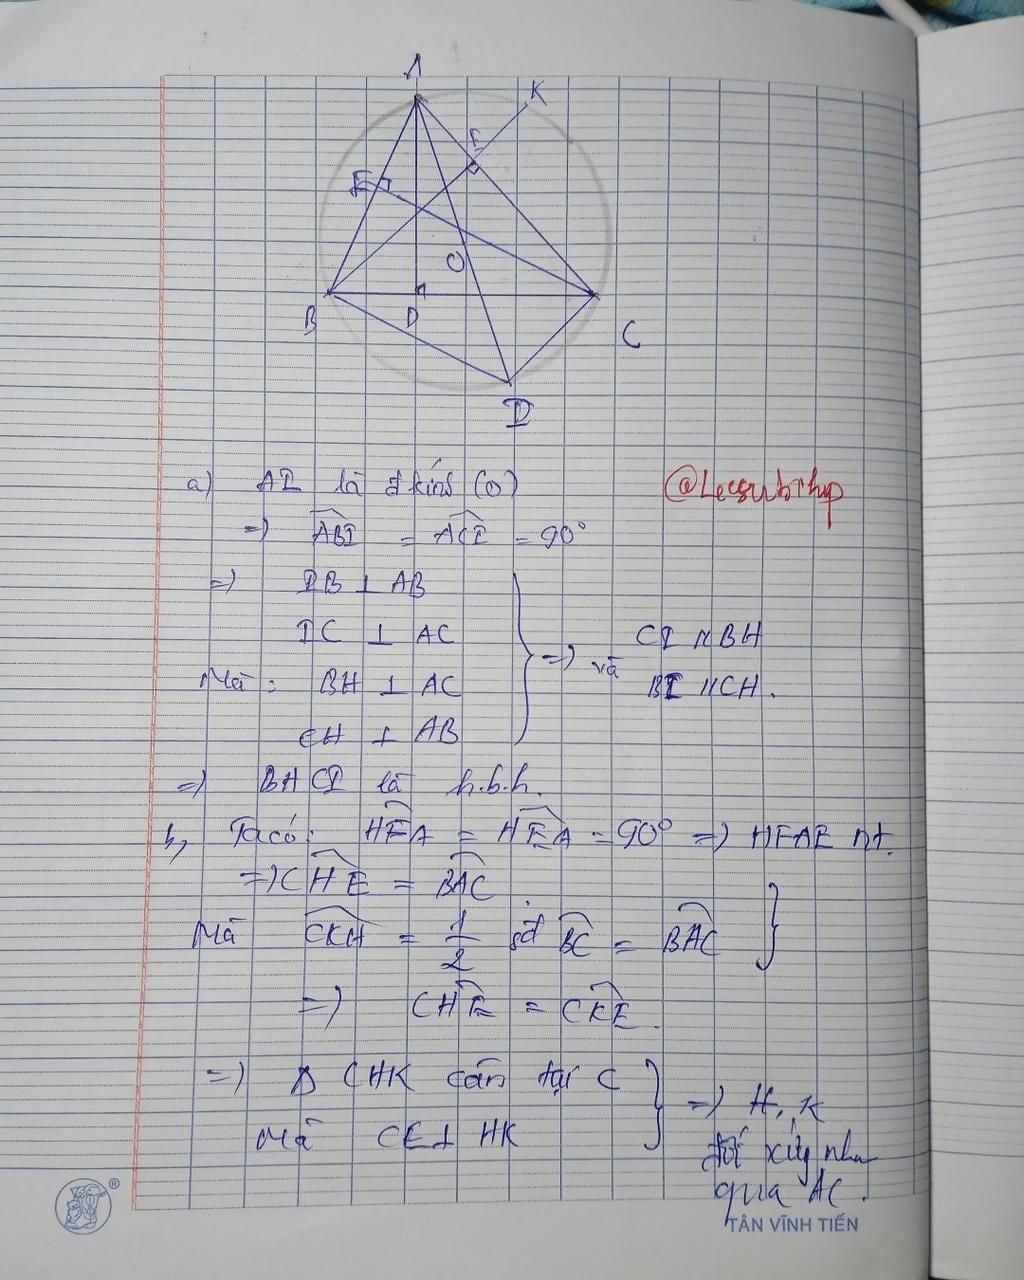 A
K
F
E
O
B
D
C
I
a) AI là đ kính (O)
@Lecsubthp
=> ABI = ACI = 90°
=> IB ⊥ AB
IC ⊥ AC
Mà: BH ⊥ AC
CH ⊥ AB
=> CI // BH
và BI // CH.
=> BHCI là h.b.h.
b, Ta có: HFA = HEA = 90° => HFAE nt.
=> CHE = BAC
Mà CKH = 1/2 sđ BC = BAC
=> CHE = CKE.
=> Δ CHK cân tại C
Mà CE ⊥ HK
=> H, K
đối xứng nhau
qua AC.
®
TÂN VĨNH TIẾN